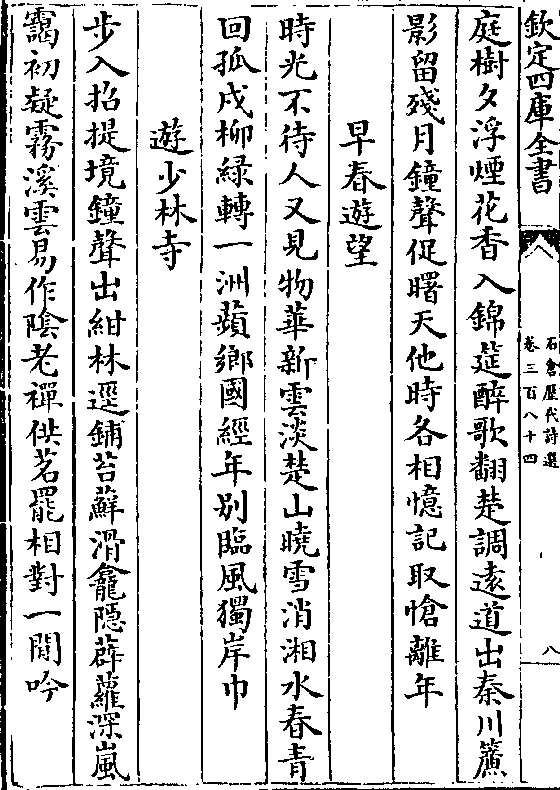 欽定四庫全書
石倉歷代詩選
卷三百八十四
八
庭樹夕浮煙花香入錦筵醉歌翻楚調逺道出秦川簾
影留殘月鐘聲促曙天他時各相憶記取愴離年
早春遊望
時光不待人又見物華新雲淡楚山曉雪消湘水春青
回孤戍柳緑轉一洲蘋鄉國經年别臨風獨岸巾
遊少林寺
步入招提境鐘聲出紺林逕鋪苔蘚滑龕隠薜蘿深嵐
靄初凝霧溪雲易作陰老禪供茗罷相對一閒吟